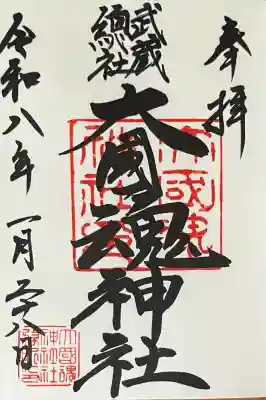 奉拝
武蔵
總社
大國魂神社
令和八年一月二十八日
大國魂神社印